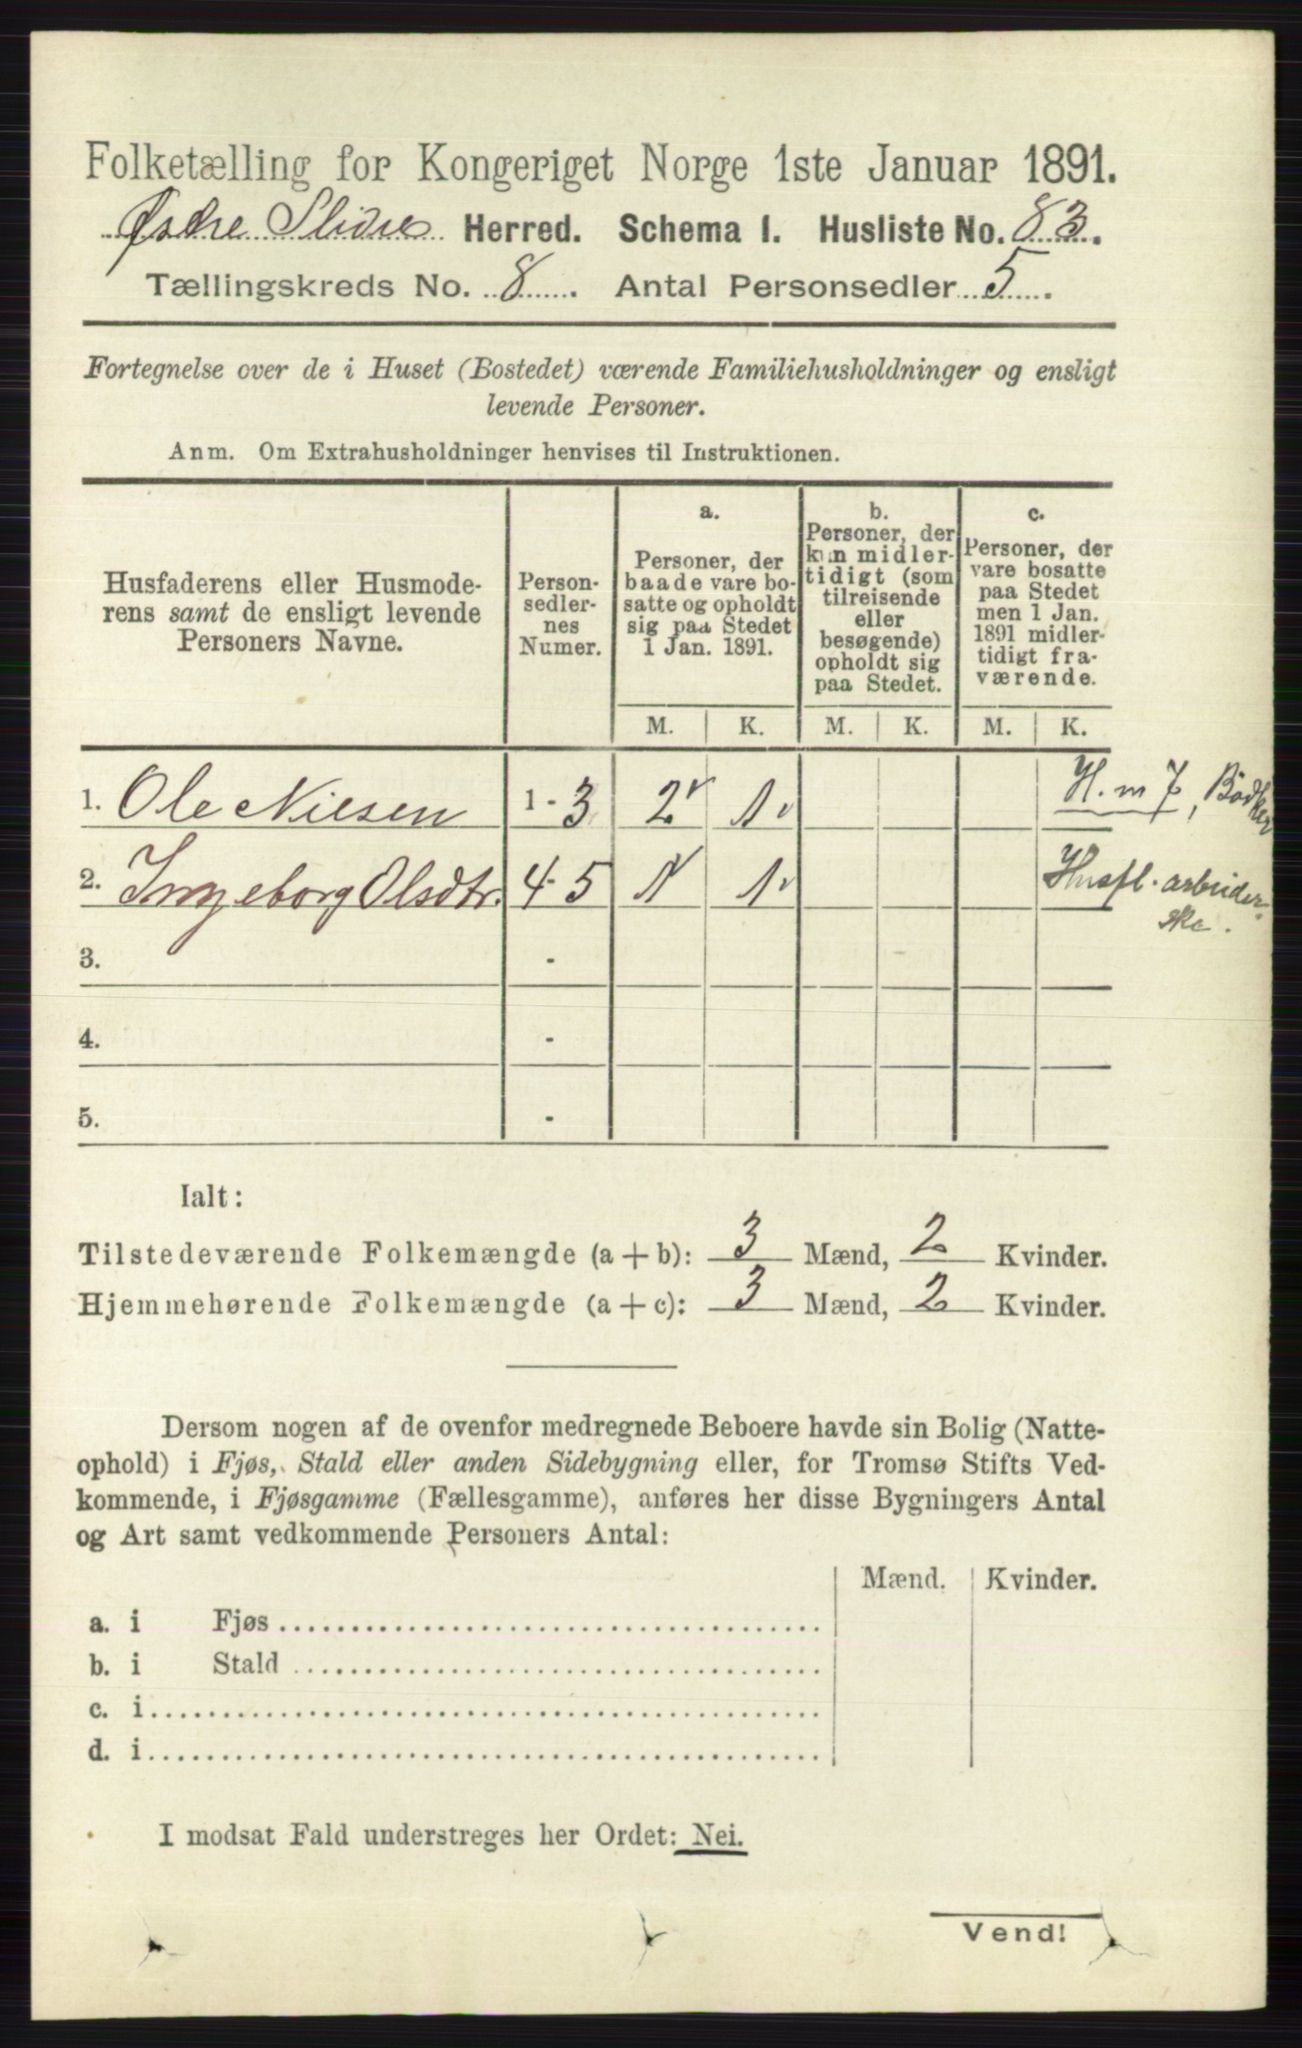 Folketælling for Kongeriget Norge 1ste Januar 1891.
Østre Slidre Herred. Schema 1. Husliste No. 83.
Tællingskreds No. 8. Antal Personsedler 5.
Fortegnelse over de i Huset (Bostedet) værende Familiehusholdninger og ensligt
levende Personer.
Anm. Om Extrahusholdninger henvises til Instruktionen.
Husfaderens eller Husmode-
rens samt de ensligt levende
Personers Navne.
Person-
sedler-
nes
Numer.
a.
Personer, der
baade vare bo-
satte og opholdt
sig paa Stedet
1 Jan. 1891.
b.
Personer, der
kun midler-
tidigt (som
tilreisende
eller
besøgende)
opholdt sig
paa Stedet.
c.
Personer, der
vare bosatte
paa Stedet
men 1 Jan.
1891 midler-
tidigt fra-
værende.
M. K. M. K. M. K.
1. Ole Nilsen 1 - 3 2 1 H. m J, Bödker
2. Ingeborg Olsdtr. 4-5 1 1 Husfl. arbeider-
ske.
3. -
4. -
5. -
Ialt:
Tilstedeværende Folkemængde (a + b): 3 Mænd, 2 Kvinder.
Hjemmehørende Folkemængde (a + c): 3 Mænd, 2 Kvinder.
Dersom nogen af de ovenfor medregnede Beboere havde sin Bolig (Natte-
ophold) i Fjøs, Stald eller anden Sidebygning eller, for Tromsø Stifts Ved-
kommende, i Fjøsgamme (Fællesgamme), anføres her disse Bygningers Antal
og Art samt vedkommende Personers Antal:
Mænd. Kvinder.
a. i Fjøs
b. i Stald
c. i
d. i
I modsat Fald understreges her Ordet: Nei.
Vend!